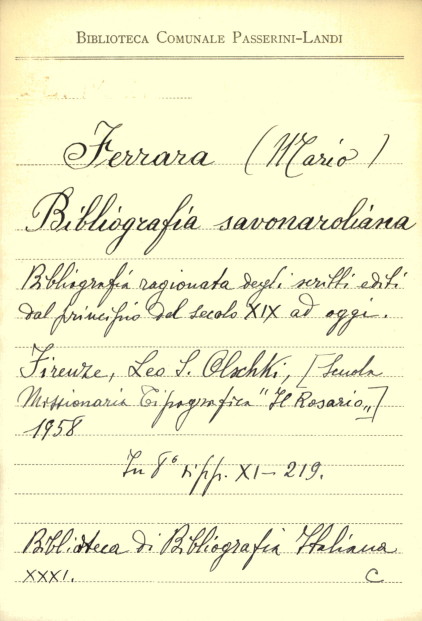 BIBLIOTECA COMUNALE PASSERINI-LANDI
Ferrara (Mario)
Bibliografia savonaroliana
Bibliografia ragionata degli scritti editi
dal principio del secolo XIX ad oggi.
Firenze, Leo S. Olschki, [Scuola
Missionaria Tipografica "Il Rosario„]
1958
In 8° pp. XI-219.
Biblioteca di Bibliografia Italiana
XXXI.
C